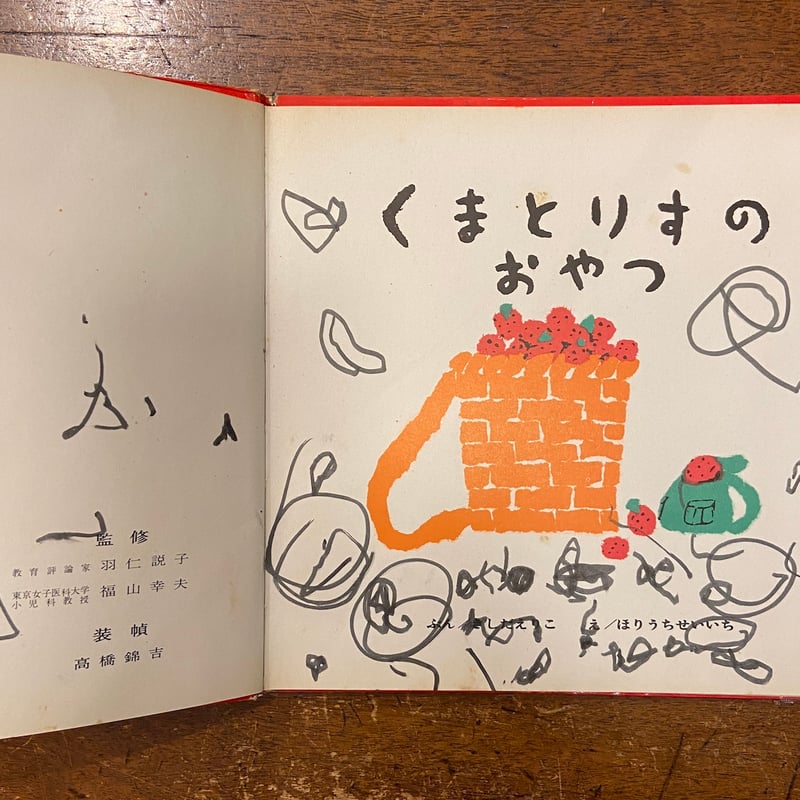 監修
教育評論家 羽仁説子
東京女子医科大学
小児科教授 福山幸夫
装幀
高橋錦吉
くまとりすの
おやつ
ぶん/きしだえりこ え/ほりうちせいいち